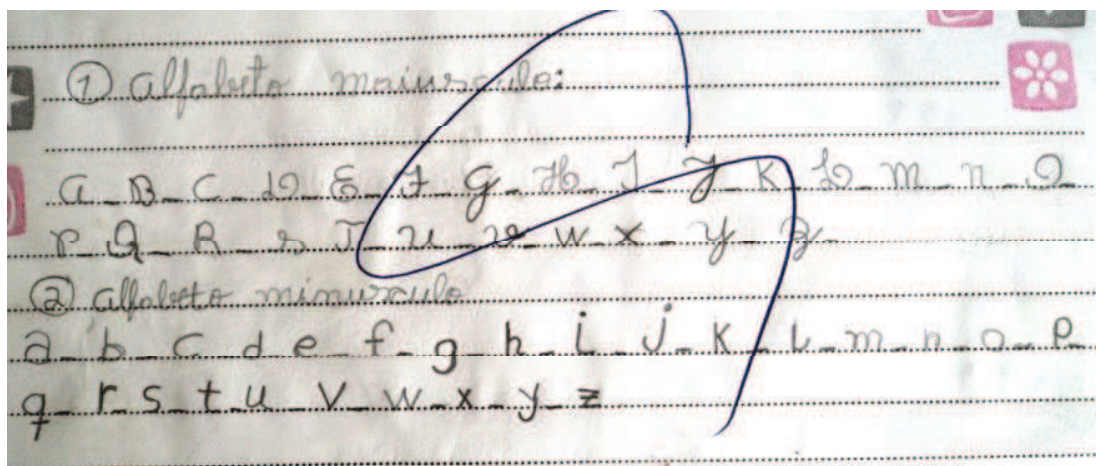 ① alfabeto maiusculo:
a - B - C - D - E - F - G - H - I - J - K - L - m - n - O
P - Q - R - s - T - u - v - w - x - y - z
② alfabeto minusculo
a - b - c - d - e - f - g - h - i - j - k - l - m - n - o - p
q - r - s - t - u - v - w - x - y - z